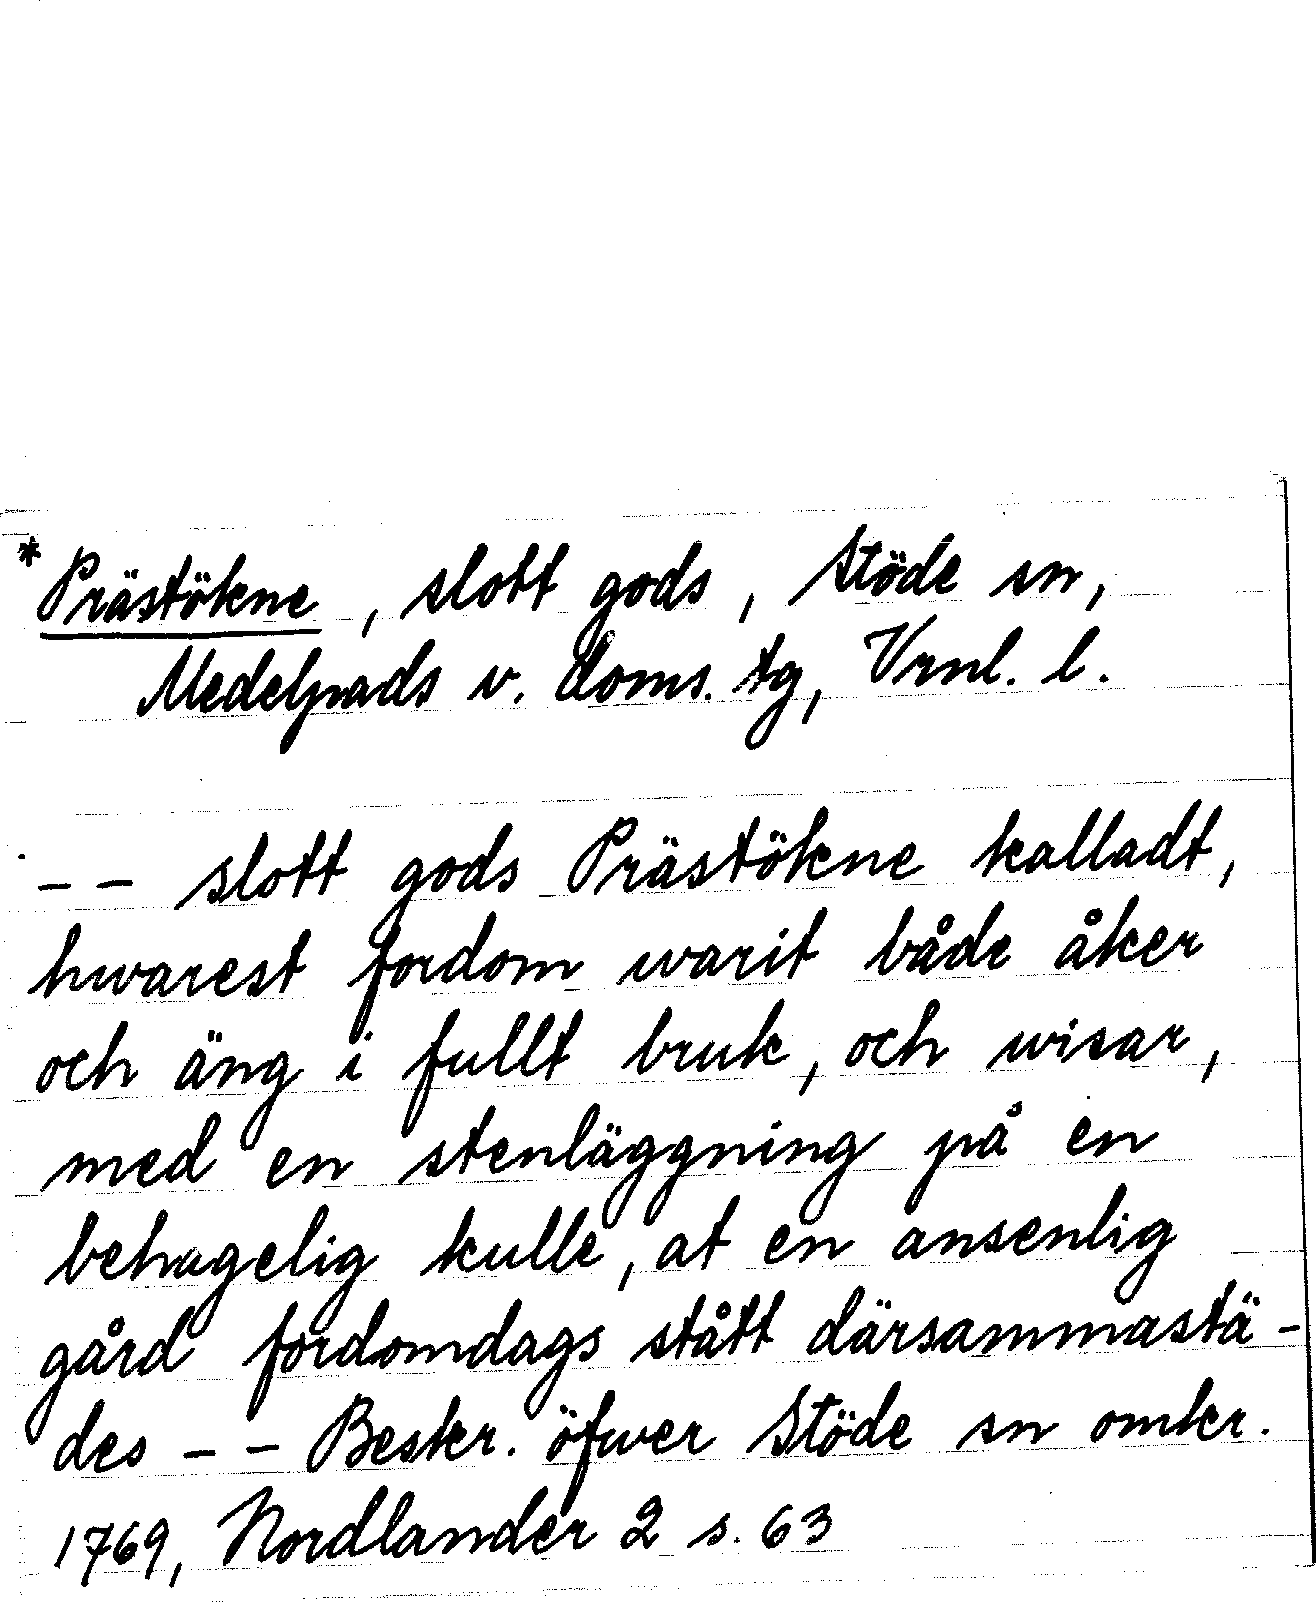 *Prästökne, slott gods, Stöde sn,
Medelpads v. doms. tg, Vrnl. l.
-- slott gods Prästökne kalladt,
hwarest fordom warit både åker
och äng i fullt bruk, och wisar,
med en stenläggning på en
behagelig kulle, at en ansenlig
gård fordomdags stått därsammastä-
des -- Beskr. öfwer Stöde sn omkr.
1769, Nordlander 2 s. 63